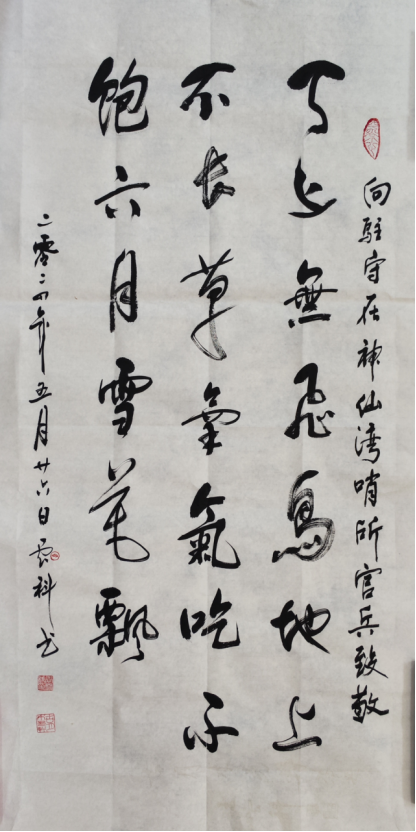 向駐守在神仙湾哨所官兵致敬
天上無飛鳥地上
不长草氧氣吃不
飽六月雪花飄
二零二四年五月廿六日科书